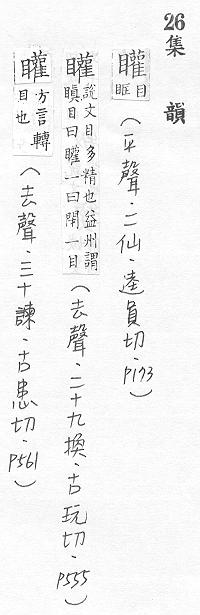 26 集韻
矔 目眶（平聲·二仙·逵員切·P173）
矔 說文目多精也益州謂瞋目曰矔一曰閉一目（去聲·二十九換·古玩切·P555）
矔 方言轉目也（去聲·三十諫·古患切·P561）